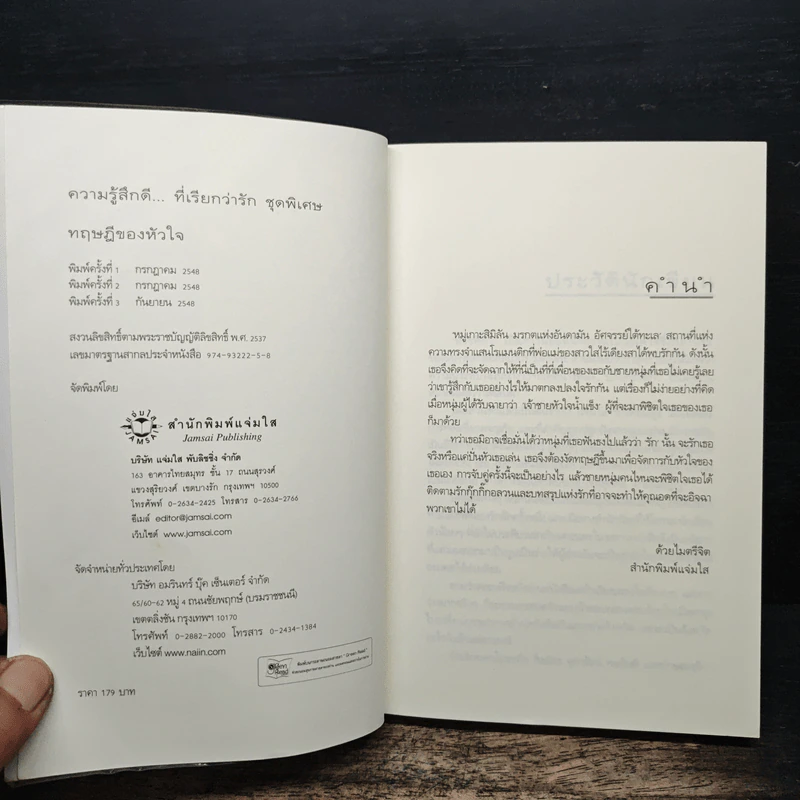 ความรู้สึกดี... ที่เรียกว่ารัก ชุดพิเศษ
ทฤษฎีของหัวใจ
พิมพ์ครั้งที่ 1 กรกฎาคม 2548
พิมพ์ครั้งที่ 2 กรกฎาคม 2548
พิมพ์ครั้งที่ 3 กันยายน 2548
สงวนลิขสิทธิ์ตามพระราชบัญญัติลิขสิทธิ์ พ.ศ. 2537
เลขมาตรฐานสากลประจำหนังสือ 974-93222-5-8
จัดพิมพ์โดย
แจ่มใส
JAMSAI
สำนักพิมพ์แจ่มใส
Jamsai Publishing
บริษัท แจ่มใส พับลิชชิ่ง จำกัด
163 อาคารไทยสมุทร ชั้น 17 ถนนสุรวงศ์
แขวงสุริยวงศ์ เขตบางรัก กรุงเทพฯ 10500
โทรศัพท์ 0-2634-2425 โทรสาร 0-2634-2766
อีเมล์ editor@jamsai.com
เว็บไซต์ www.jamsai.com
จัดจำหน่ายทั่วประเทศโดย
บริษัท อมรินทร์ บุ๊ค เซ็นเตอร์ จำกัด
65/60-62 หมู่ 4 ถนนชัยพฤกษ์ (บรมราชชนนี)
เขตตลิ่งชัน กรุงเทพฯ 10170
โทรศัพท์ 0-2882-2000 โทรสาร 0-2434-1384
เว็บไซต์ www.naiin.com
ราคา 179 บาท
คำนำ
หมู่เกาะสิมิลัน มรกตแห่งอันดามัน อัศจรรย์ใต้ทะเล สถานที่แห่ง
ความทรงจำแสนโรแมนติกที่พ่อแม่ของสาวใสไร้เดียงสาได้พบรักกัน ดังนั้น
เธอจึงคิดที่จะจัดฉากให้ที่นี่เป็นที่ที่เพื่อนของเธอกับชายหนุ่มที่เธอไม่เคยรู้เลย
ว่าเขารู้สึกกับเธออย่างไรให้มาตกลงปลงใจรักกัน แต่เรื่องก็ไม่ง่ายอย่างที่คิด
เมื่อหนุ่มผู้ได้รับฉายาว่า 'เจ้าชายหัวใจน้ำแข็ง' ผู้ที่จะมาพิชิตใจเธอของเธอ
ก็มาด้วย
ทว่าเธอมิอาจเชื่อมั่นได้ว่าหนุ่มที่เธอฟันธงไปแล้วว่า 'รัก' นั้น จะรักเธอ
จริงหรือแค่ปั่นหัวเธอเล่น เธอจึงต้องงัดทฤษฎีขึ้นมาเพื่อจัดการกับหัวใจของ
เธอเอง การจับคู่ครั้งนี้จะเป็นอย่างไร แล้วชายหนุ่มคนไหนจะพิชิตใจเธอได้
ติดตามรักกุ๊กกิ๊กอลวนและบทสรุปแห่งรักที่อาจจะทำให้คุณอดที่จะอิจฉา
พวกเขาไม่ได้
ด้วยไมตรีจิต
สำนักพิมพ์แจ่มใส